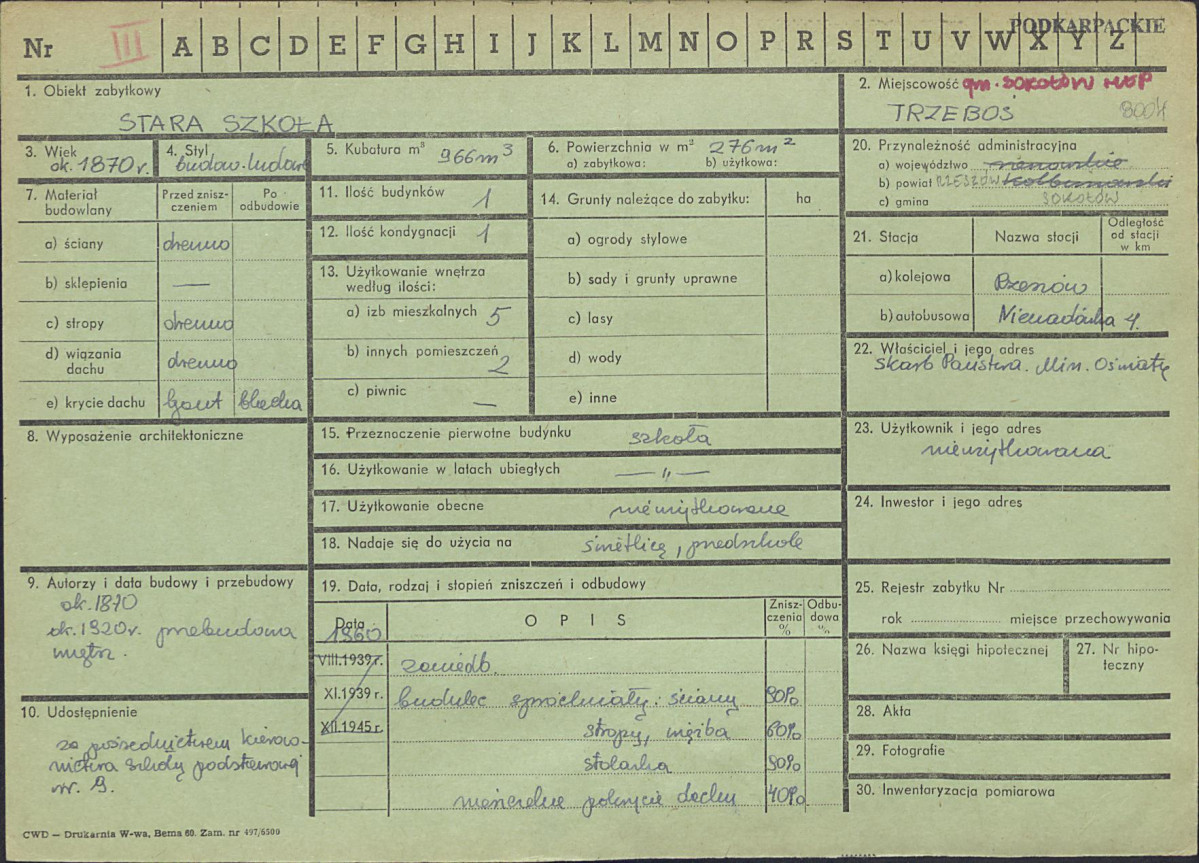 PODKARPACKIE
Nr III A B C D E F G H I J K L M N O P R S T U V W X Y Z
1. Obiekt zabytkowy
STARA SZKOŁA
2. Miejscowość gm. SOKOŁÓW MŁP
TRZEBOŚ 8004
3. Wiek
ok. 1870 r.
4. Styl
budow. ludowe
5. Kubatura m³ 966 m³
6. Powierzchnia w m² 276 m²
a) zabytkowa: b) użytkowa:
7. Materiał budowlany
Przed zniszczeniem
Po odbudowie
a) ściany drewno
b) sklepienia —
c) stropy drewno
d) wiązania dachu drewno
e) krycie dachu gont blacha
8. Wyposażenie architektoniczne
9. Autorzy i data budowy i przebudowy
ok. 1870
ok. 1920 r. przebudowa
wnętrz.
10. Udostępnienie
za pośrednictwem kierow-
nictwa szkoły podstawowej
nr. 9.
11. Ilość budynków 1
12. Ilość kondygnacji 1
13. Użytkowanie wnętrza
według ilości:
a) izb mieszkalnych 5
b) innych pomieszczeń 2
c) piwnic —
14. Grunty należące do zabytku: ha
a) ogrody stylowe
b) sady i grunty uprawne
c) lasy
d) wody
e) inne
15. Przeznoczenie pierwotne budynku szkoła
16. Użytkowanie w latach ubiegłych — „ —
17. Użytkowanie obecne nieużytkowana
18. Nadaje się do użycia na świetlicę, przedszkole
19. Data, rodzaj i stopień zniszczeń i odbudowy
Data OPIS Zniszczenia % Odbudowa %
1960
VIII.1939 r. zaniedb.
XI.1939 r. budulec spróchniały: ściany 80%
XII.1945 r. stropy, więźba 60%
stolarka 90%
nieszczelne pokrycie dachu 40%
20. Przynależność administracyjna
a) województwo rzeszowskie
b) powiat RZESZÓW kolbuszowski
c) gmina SOKOŁÓW
21. Stacja Nazwa stacji Odległość od stacji w km
a) kolejowa Rzeszów
b) autobusowa Nienadówka 4.
22. Właściciel i jego adres
Skarb Państwa. Min. Oświaty
23. Użytkownik i jego adres
nieużytkowana
24. Inwestor i jego adres
25. Rejestr zabytku Nr
rok miejsce przechowywania
26. Nazwa księgi hipotecznej
27. Nr hipoteczny
28. Akta
29. Fotografie
30. Inwentaryzacja pomiarowa
CWD — Drukarnia W-wa, Bema 60. Zam. nr 497/6500